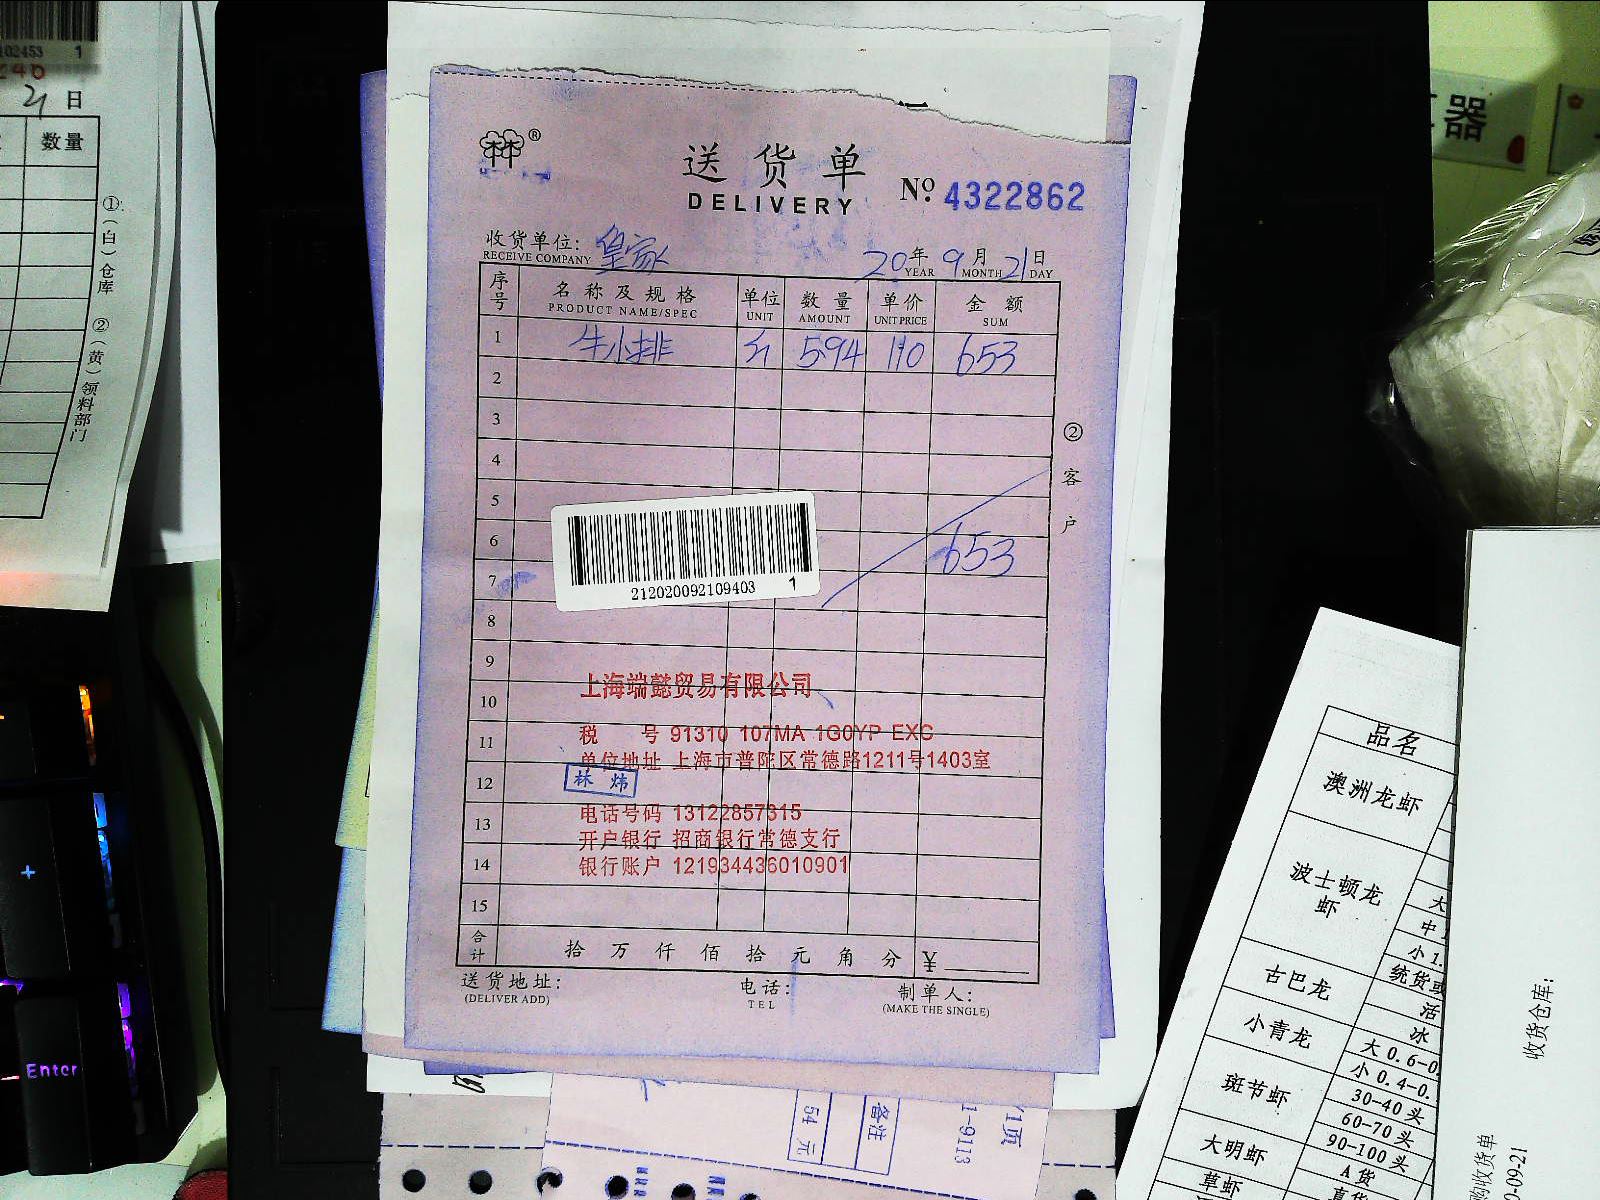 送货单
DELIVERY
Nº 4322862
收货单位: 皇家
RECEIVE COMPANY
20年 9月 21日
YEAR MONTH DAY
序号 名称及规格 单位 数量 单价 金额
PRODUCT NAME/SPEC UNIT AMOUNT UNIT PRICE SUM
1 牛小排 斤 5.94 110 653
2
3
4
5
6 653
7
212020092109403 1
8
9
上海端懿贸易有限公司
10
11 税 号 91310 107MA 1G0YP EXC
单位地址 上海市普陀区常德路1211号1403室
12 林炜
电话号码 13122857315
13
开户银行 招商银行常德支行
14 银行账户 121934436010901
15
合计 拾 万 仟 佰 拾 元 角 分 ¥
送货地址: 电话: 制单人:
(DELIVER ADD) TEL (MAKE THE SINGLE)
②客户
102453 1
246
21日
数量
①(白)仓库 ②(黄)领料部门
Enter
器
品名
澳洲龙虾
波士顿龙虾
大
中
小 1.
古巴龙
统货或
活
小青龙
冰
大 0.6-0.
小 0.4-0.
斑节虾
30-40 头
60-70 头
90-100 头
大明虾
A 货
草虾
收货仓库:
购收货单
0-09-21
备注
54 元
/1页
1-9113